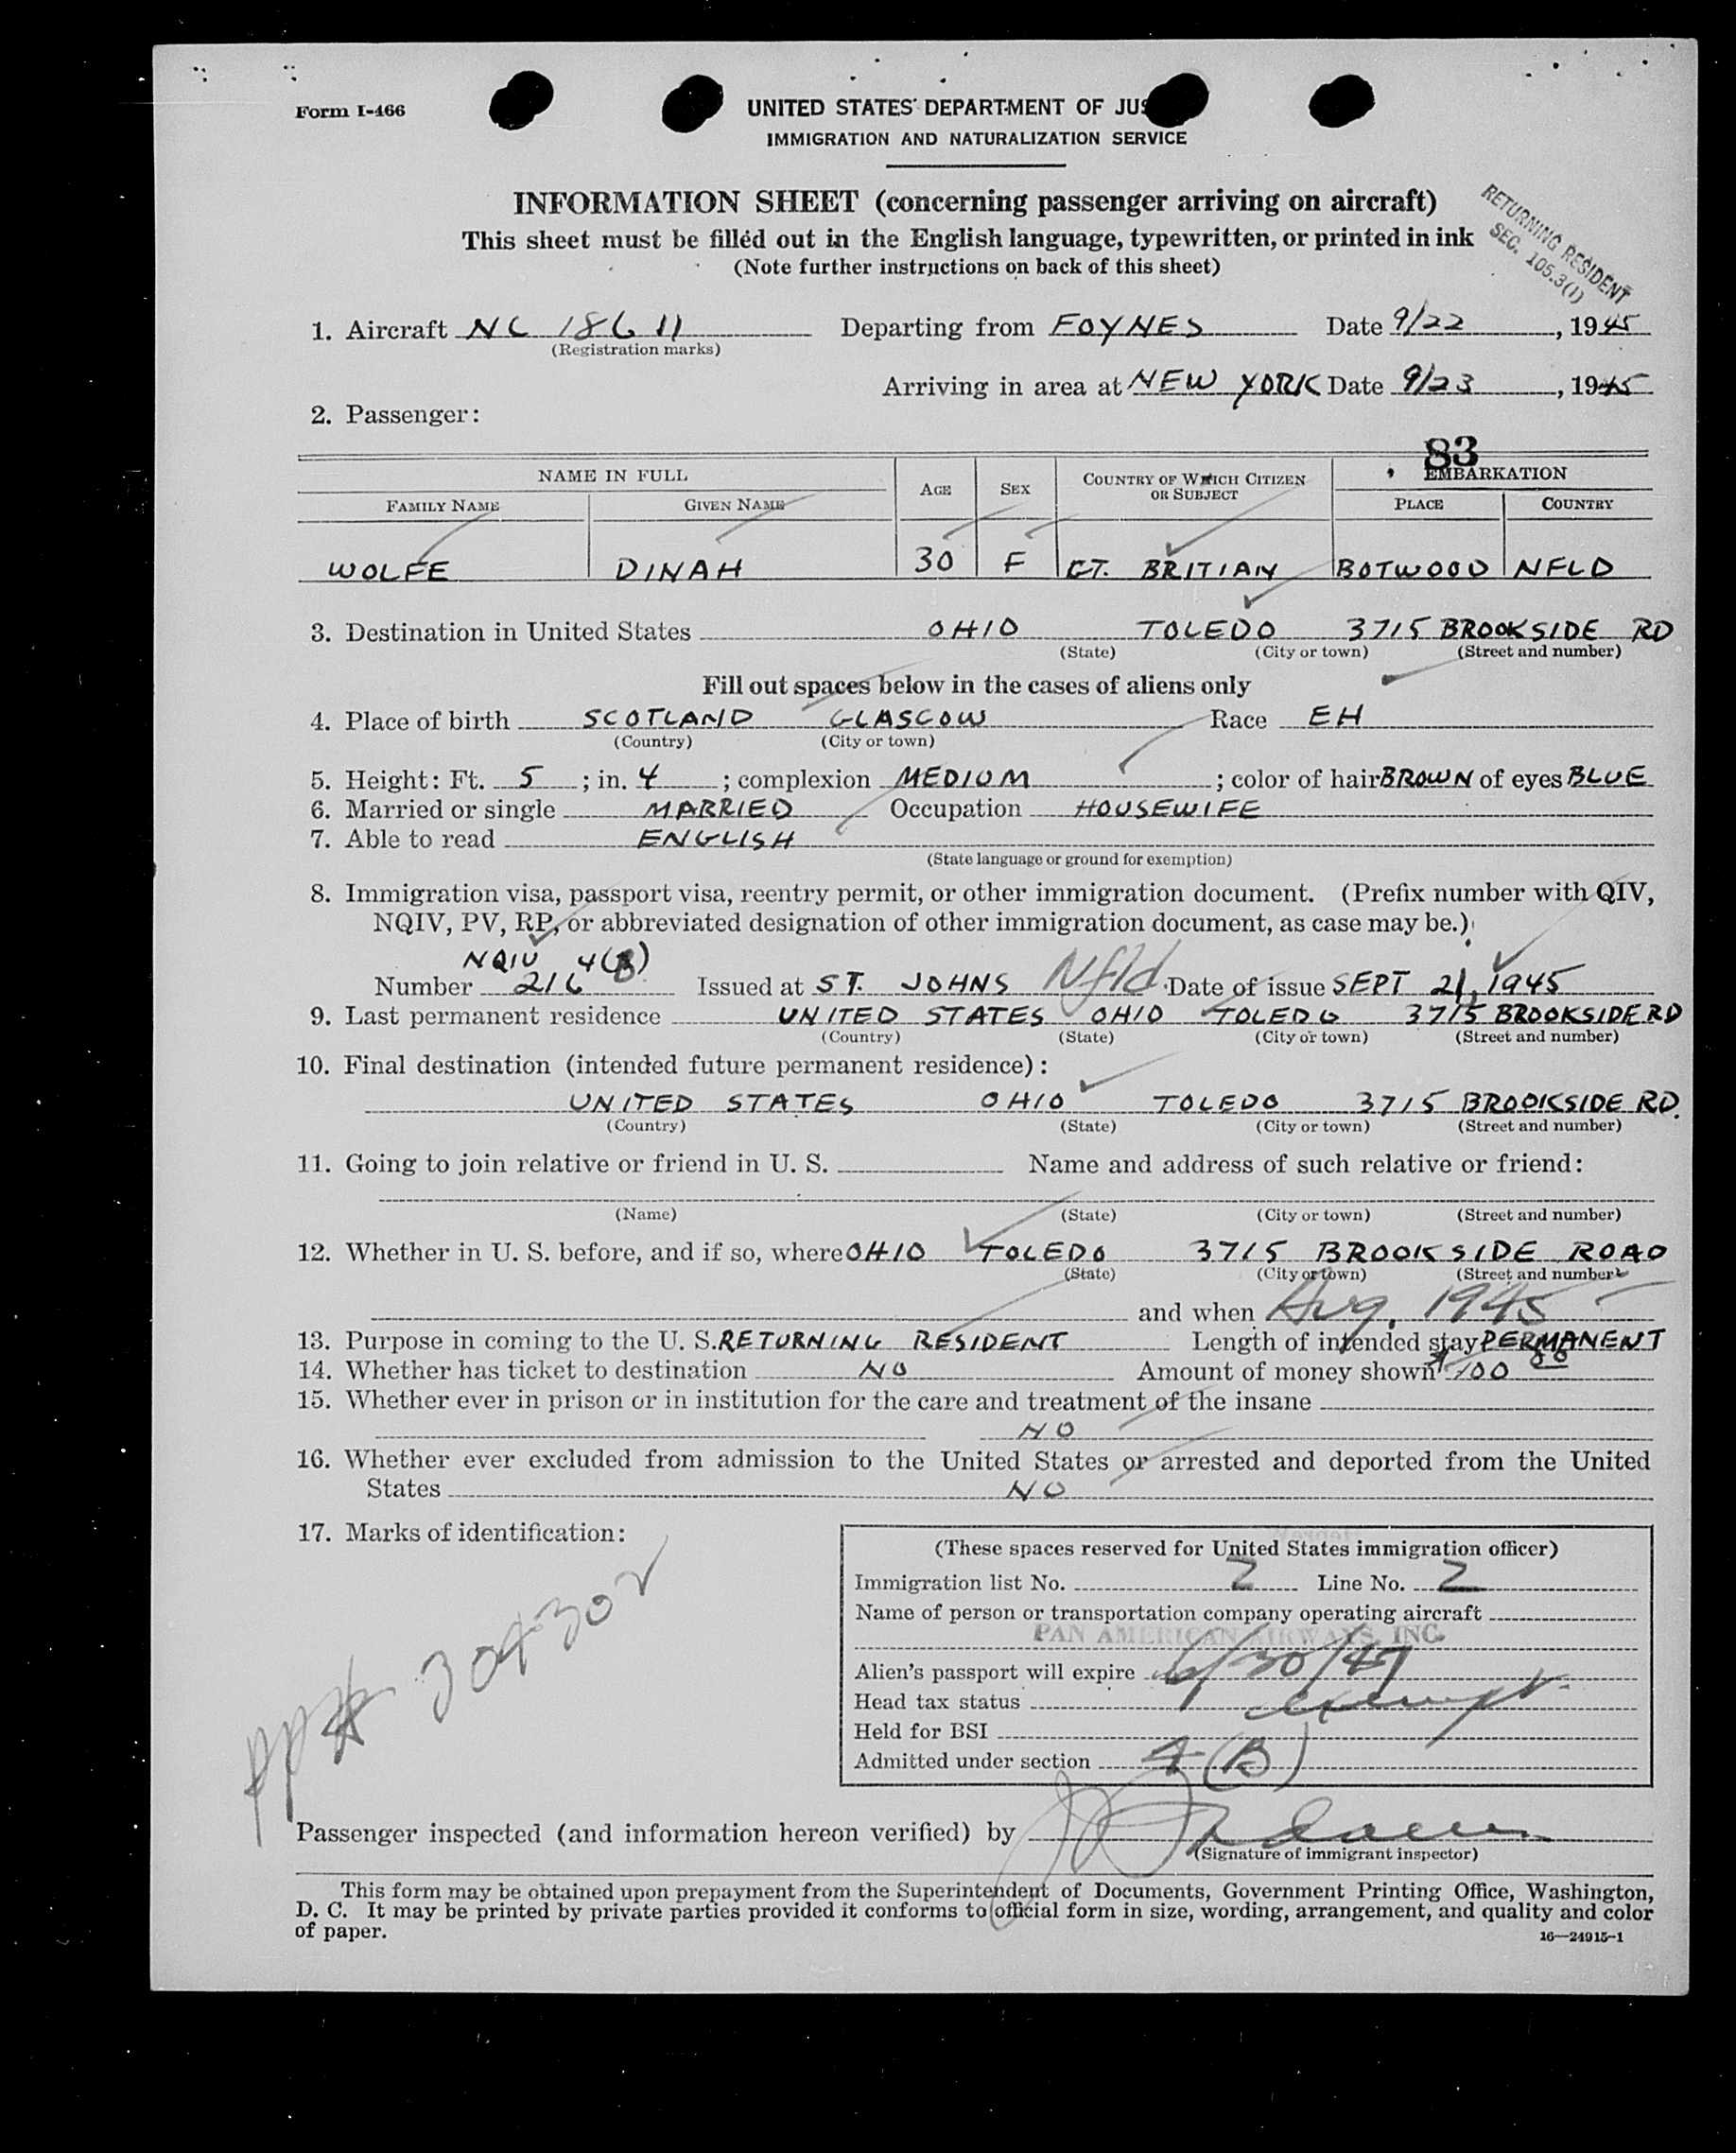 Form I-466
UNITED STATES DEPARTMENT OF JUS
IMMIGRATION AND NATURALIZATION SERVICE
INFORMATION SHEET (concerning passenger arriving on aircraft)
This sheet must be filled out in the English language, typewritten, or printed in ink
(Note further instructions on back of this sheet)
RETURNING RESIDENT
SEC. 105.3(1)
1. Aircraft NC 18611 Departing from FOYNES Date 9/22, 1945
(Registration marks)
Arriving in area at NEW YORK Date 9/23, 1945
2. Passenger:
83
NAME IN FULL AGE SEX COUNTRY OF WHICH CITIZEN OR SUBJECT EMBARKATION
FAMILY NAME GIVEN NAME PLACE COUNTRY
WOLFE DINAH 30 F GT. BRITIAN BOTWOOD NFLD
3. Destination in United States OHIO TOLEDO 3715 BROOKSIDE RD
(State) (City or town) (Street and number)
Fill out spaces below in the cases of aliens only
4. Place of birth SCOTLAND GLASCOW Race EH
(Country) (City or town)
5. Height: Ft. 5; in. 4; complexion MEDIUM; color of hair BROWN of eyes BLUE
6. Married or single MARRIED Occupation HOUSEWIFE
7. Able to read ENGLISH
(State language or ground for exemption)
8. Immigration visa, passport visa, reentry permit, or other immigration document. (Prefix number with QIV,
NQIV, PV, RP, or abbreviated designation of other immigration document, as case may be.)
NQIV 4(B)
Number 216 Issued at ST. JOHNS Nfld Date of issue SEPT 21, 1945
9. Last permanent residence UNITED STATES OHIO TOLEDO 3715 BROOKSIDE RD
(Country) (State) (City or town) (Street and number)
10. Final destination (intended future permanent residence):
UNITED STATES OHIO TOLEDO 3715 BROOKSIDE RD.
(Country) (State) (City or town) (Street and number)
11. Going to join relative or friend in U. S. Name and address of such relative or friend:
(Name) (State) (City or town) (Street and number)
12. Whether in U. S. before, and if so, where OHIO TOLEDO 3715 BROOKSIDE ROAD
(State) (City or town) (Street and number)
and when Aug. 1945
13. Purpose in coming to the U. S. RETURNING RESIDENT Length of intended stay PERMANENT
14. Whether has ticket to destination NO Amount of money shown $100 00
15. Whether ever in prison or in institution for the care and treatment of the insane
NO
16. Whether ever excluded from admission to the United States or arrested and deported from the United
States NO
17. Marks of identification:
pp# 304302
(These spaces reserved for United States immigration officer)
Immigration list No. 2 Line No. 2
Name of person or transportation company operating aircraft
PAN AMERICAN AIRWAYS, INC.
Alien's passport will expire 6/30/47
Head tax status exempt.
Held for BSI
Admitted under section 4(B)
Passenger inspected (and information hereon verified) by
(Signature of immigrant inspector)
This form may be obtained upon prepayment from the Superintendent of Documents, Government Printing Office, Washington,
D. C. It may be printed by private parties provided it conforms to official form in size, wording, arrangement, and quality and color
of paper.
16—24915-1